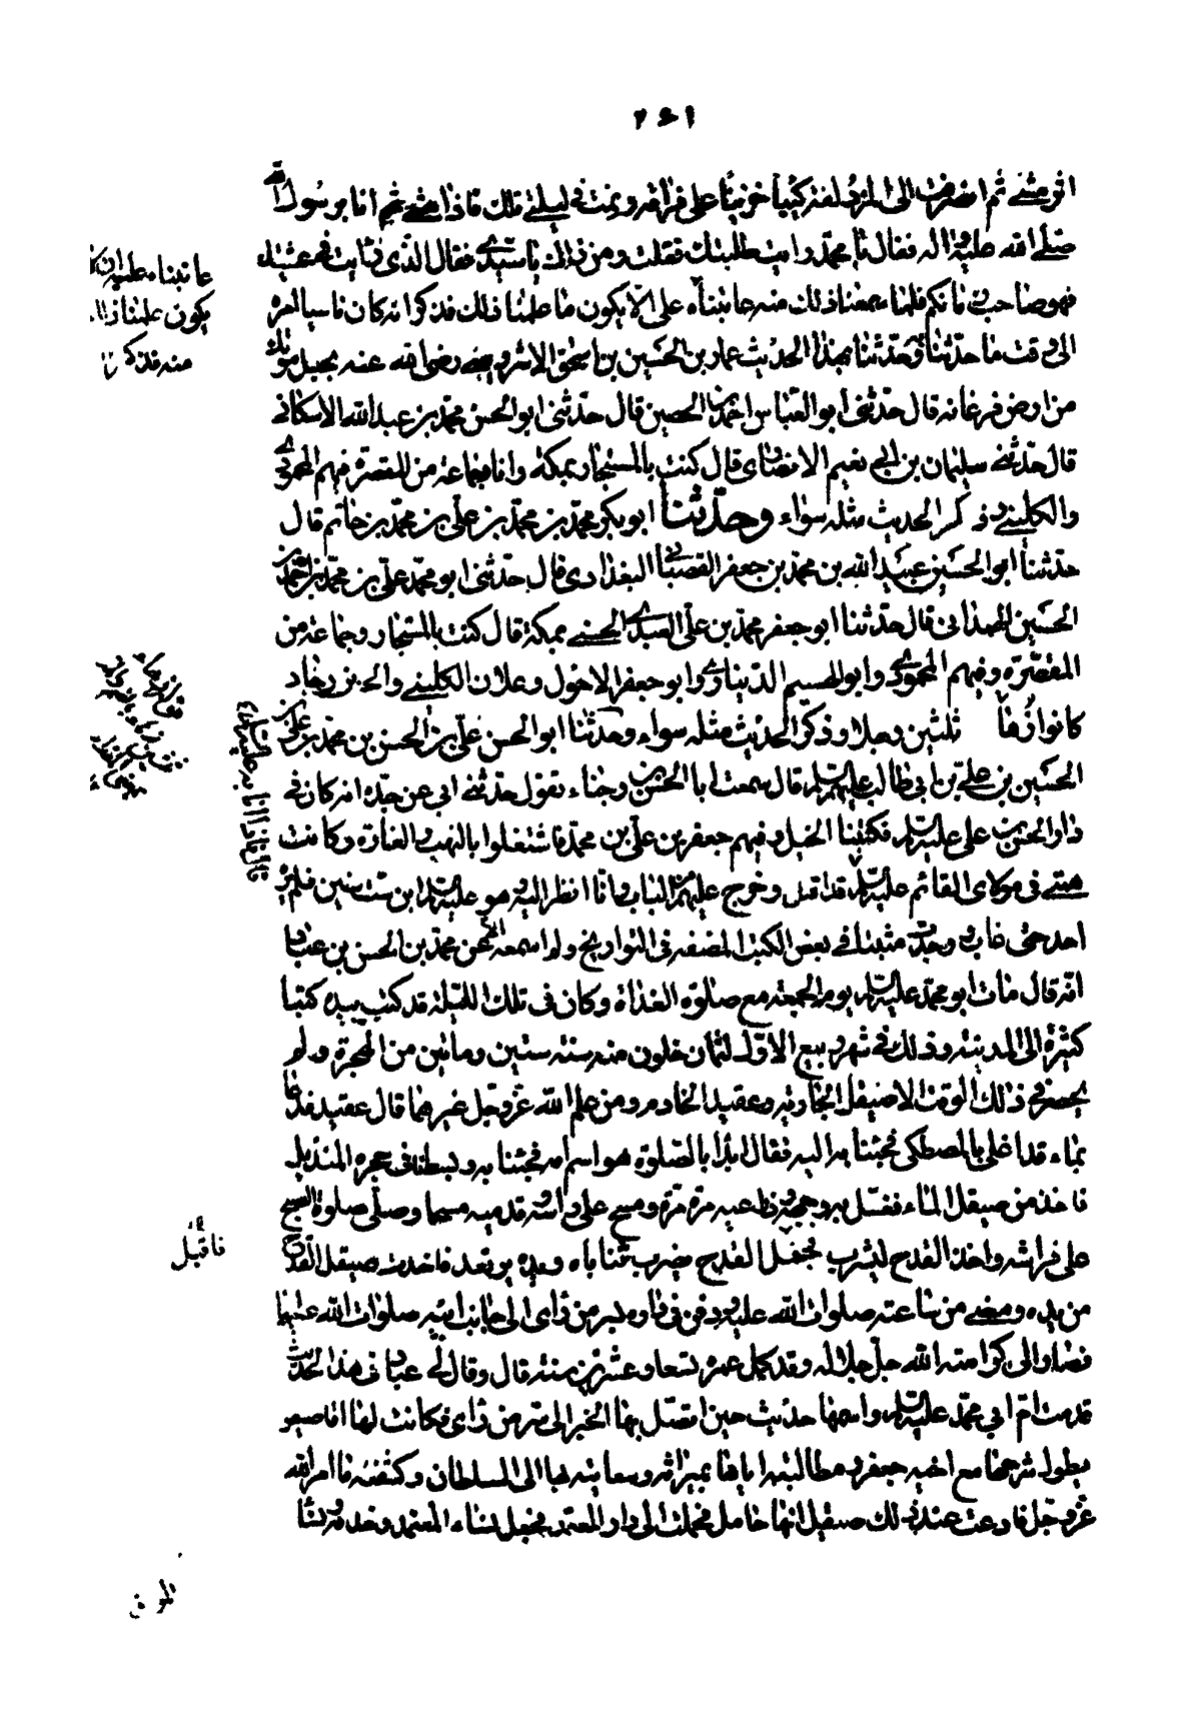 ٢٦١
اثر مشي ثم انصرفت الى المزدلفة كئيبا حزينا على فراقه ونمت في ليلتي تلك فاذا انا برسول الله
صلى الله عليه واله فقال يا محمد رايت طلبتك فقلت ومن ذلك يا سيدي فقال الذي رايته في عشيتك
فهو صاحب زمانكم فلما سمعنا ذلك منه عاتبناه على الا يكون ما علمنا ذلك فذكر انه كان ناسيا امره
الى وقت ما حدثنا وحدثنا بهذا الحديث عمار بن الحسين بن اسحق الاشروسني رضي الله عنه بجبل بوتك
من ارض فرغانه قال حدثني ابو العباس احمد بن الحصين قال حدثني ابو الحسن محمد بن عبد الله الاسكافي
قال حدثني سليمان بن ابي نعيم الانصاري قال كنت بالمستجار بمكة وانا وجماعة من المقصرة فيهم المحمودي
والكليني وذكر الحديث مثله سواء وحدثنا ابو بكر محمد بن محمد بن علي بن محمد بن حاتم قال
حدثنا ابو الحسين عبيد الله بن محمد بن جعفر القصباني البغدادي قال حدثني ابو محمد علي بن محمد بن احمد بن
الحسين الهمداني قال حدثنا ابو جعفر محمد بن علي العبدي الحسني بمكة قال كنت بالمستجار وجماعة من
المقصرة وفيهم المحمودي وابو الهيثم الديناري وابو جعفر الاحول وعلان الكليني والحسن بن وجناء
كانوا زهاء ثلثين رجلا وذكر الحديث مثله سواء وحدثنا ابو الحسن علي بن الحسن بن محمد بن علي بن
الحسين بن علي بن ابي طالب عليهم السلام قال سمعت ابا الحسن بن وجناء يقول حدثني ابي عن جده انه كان في
دار الحسن بن علي عليه السلام فكبستنا الخيل وفيهم جعفر بن علي بن محمد فاشتغلوا بالنهب والغارة وكانت
همتي في مولاي القائم عليه السلام قد اقبل وخرج عليهم من الباب وانا انظر اليه وهو عليه السلام ابن ست سنين فلم يره
احد حتى غاب ووجدت مثبتا في بعض الكتب المصنفه في التواريخ ولم اسمعه الا عن محمد بن الحسن بن عباد
انه قال مات ابو محمد عليه السلام يوم الجمعة مع صلوة الغداة وكان في تلك الليلة قد كتب بيده كتبا
كثيرة الى المدينة وذلك في شهر ربيع الاول لثمان خلون منه سنة ستين ومائتين من الهجرة ولم
يحضره في ذلك الوقت الا صيقل الجارية وعقيد الخادم ومن علم الله عز وجل غيرهما قال عقيد فدعا
بماء قد اغلي بالمصطكي فجئنا به اليه فقال ابدا بالصلوة فجئنا به وبسطنا في حجره المنديل
فاخذ من صيقل الماء فغسل به وجهه وذراعيه مرة مرة ومسح على راسه وقدميه مسحا وصلى صلوة الصبح
على فراشه واخذ القدح ليشرب فجعل القدح يضرب ثناياه ويده ترتعد فاخذت صيقل القدح
من يده ومضى من ساعته صلوات الله عليه ودفن في داره بسر من راى الى جانب ابيه صلوات الله عليهما
فصار الى كرامة الله جل جلاله وقد كمل عمره تسعا وعشرين سنة قال وقال لي عباد في هذا الحديث
قدمت ام ابي محمد عليه السلام واسمها حديث حين اتصل بها الخبر الى سر من راى فكانت لها اقاصيص
يطول شرحها مع اخيه جعفر ومطالبته اياها بميراثه وسعايته بها الى السلطان وكشفه ما امر الله
عز وجل فادعت عند ذلك صيقل انها حامل فحملت الى دار المعتمد فجعل نساء المعتمد وخدمه ونساء
عاتبناه عليه
يكون علمنا ذلك
منه فذكر
فاقبل
الموفق